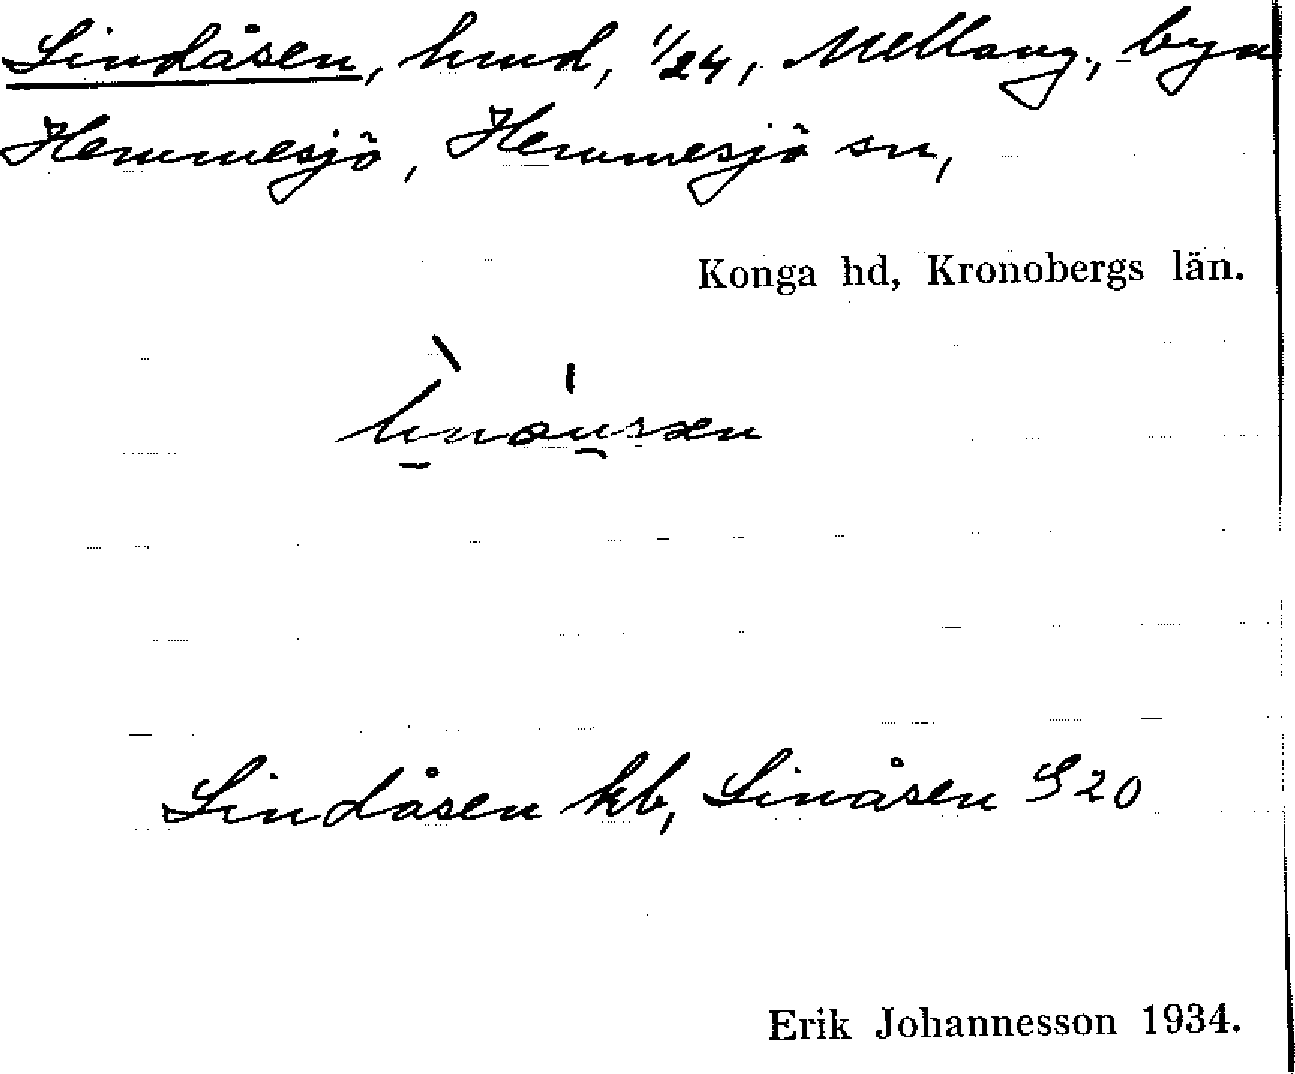 Lindåsen, hmd, 1/24, Mellang., byn
Hemmesjö, Hemmesjö sn,
Konga hd, Kronobergs län.
Lindåsen kb, Linåsen S 20
Erik Johannesson 1934.